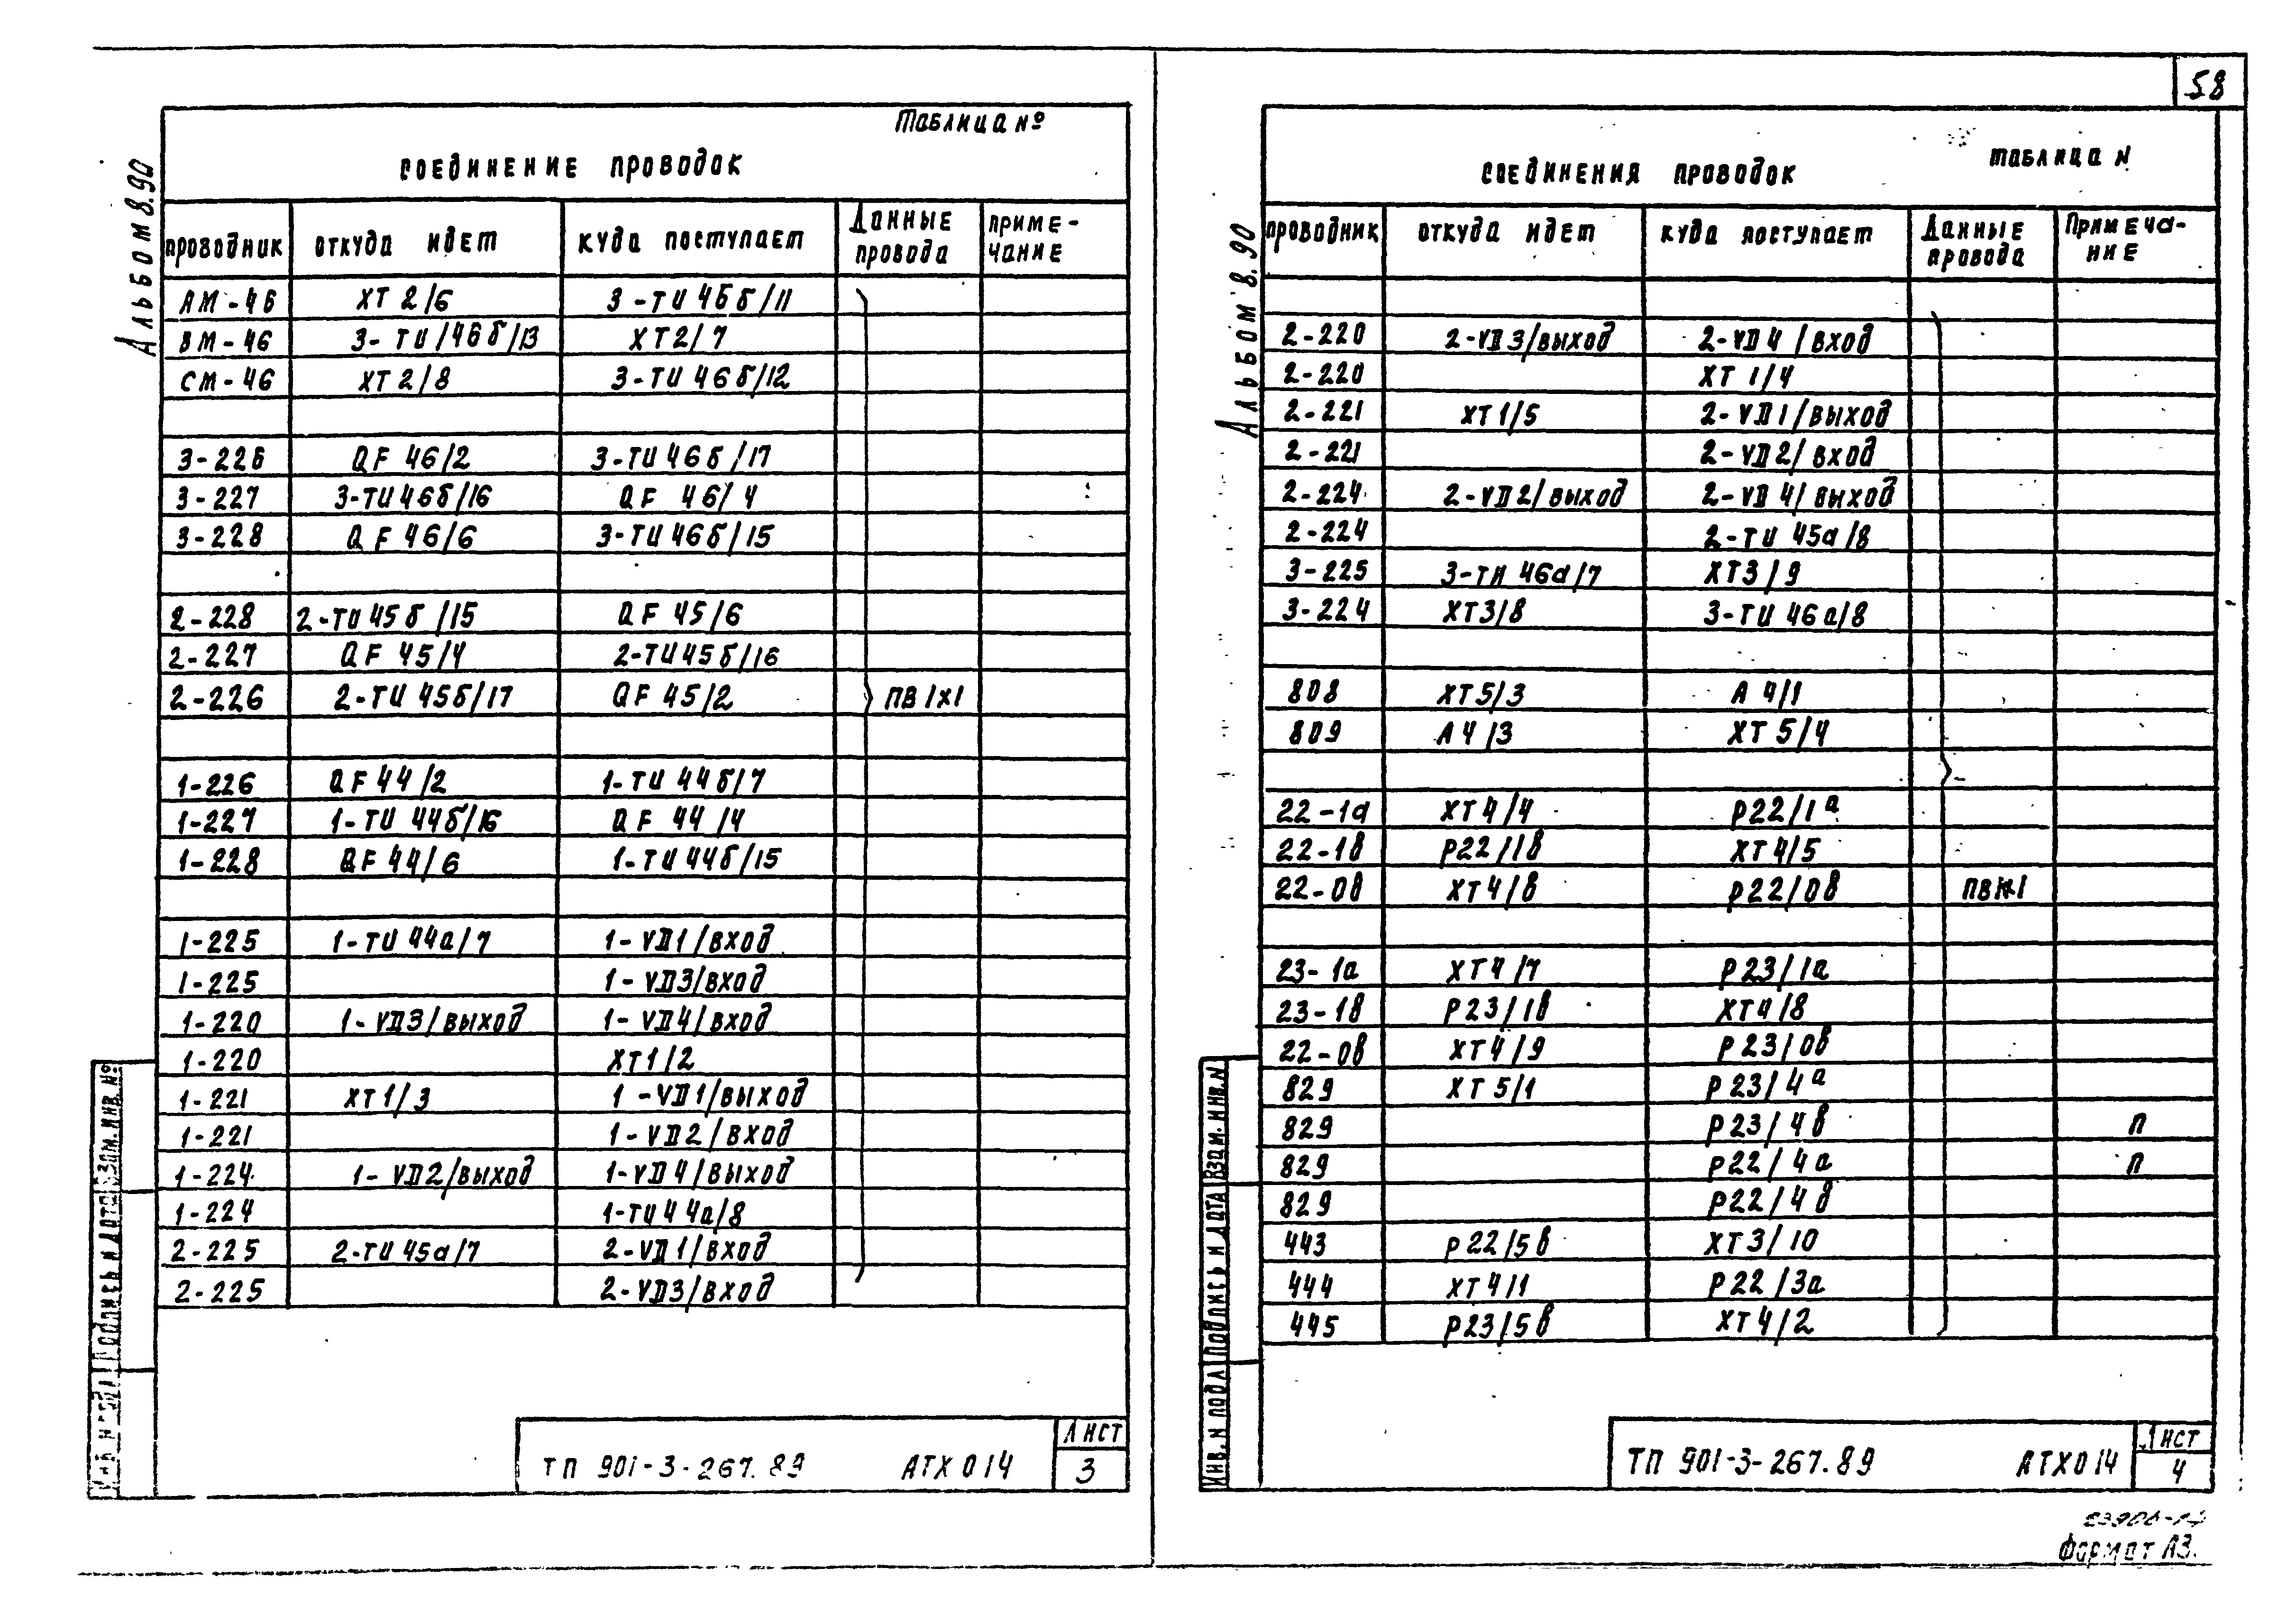 58
Альбом 8.90
Таблица №
соединение проводок
проводник откуда идет куда поступает Данные провода Примечание
АМ-46 ХТ 2/6 3-TU 46б/11
ВМ-46 3-TU/46б/13 ХТ2/7
СМ-46 ХТ 2/8 3-TU 46б/12
3-226 QF 46/2 3-TU 46б/17
3-227 3-TU 46б/16 QF 46/4
3-228 QF 46/6 3-TU 46б/15
2-228 2-TU 45б/15 QF 45/6
2-227 QF 45/4 2-TU 45б/16
2-226 2-TU 45б/17 QF 45/2 ПВ 1х1
1-226 QF 44/2 1-TU 44б/7
1-227 1-TU 44б/16 QF 44/4
1-228 QF 44/6 1-TU 44б/15
1-225 1-TU 44а/7 1-VD1/вход
1-225 1-VD3/вход
1-220 1-VD3/выход 1-VD4/вход
1-220 ХТ1/2
1-221 ХТ1/3 1-VD1/выход
1-221 1-VD2/вход
1-224 1-VD2/выход 1-VD4/выход
1-224 1-TU 44а/8
2-225 2-TU 45а/7 2-VD1/вход
2-225 2-VD3/вход
Взам. инв. №
Подпись и дата
Инв. № подл
ТП 901-3-267.89 АТХ014
Лист
3
Альбом 8.90
таблица N
соединения проводок
проводник откуда идет куда поступает Данные провода Примечание
2-220 2-VD3/выход 2-VD4/вход
2-220 ХТ 1/4
2-221 ХТ1/5 2-VD1/выход
2-221 2-VD2/вход
2-224 2-VD2/выход 2-VD4/выход
2-224 2-TU 45а/8
3-225 3-TU 46а/7 ХТ3/9
3-224 ХТ3/8 3-TU 46а/8
808 ХТ5/3 А4/1
809 А4/3 ХТ5/4
22-1а ХТ4/4 Р22/1а
22-1в Р22/1в ХТ4/5
22-0в ХТ4/6 Р22/0в ПВ1х1
23-1а ХТ4/7 Р23/1а
23-1в Р23/1в ХТ4/8
22-0в ХТ4/9 Р23/0в
829 ХТ5/1 Р23/4а
829 Р23/4в П
829 Р22/4а П
829 Р22/4в
443 Р22/5в ХТ3/10
444 ХТ4/1 Р22/3а
445 Р23/5в ХТ4/2
Взам. инв. N
Подпись и дата
Инв. N подл
ТП 901-3-267.89 АТХ014
Лист
4
Формат А3.